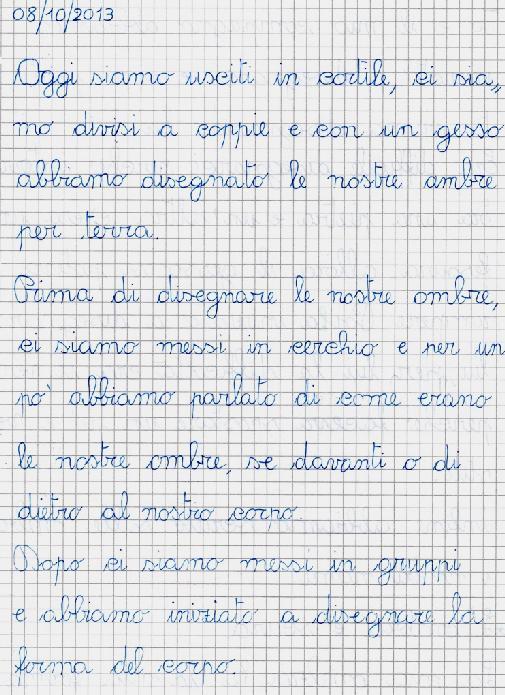 08/10/2013
Oggi siamo usciti in cortile, ci sia„
mo divisi a coppie e con un gesso
abbiamo disegnato le nostre ombre
per terra.
Prima di disegnare le nostre ombre,
ci siamo messi in cerchio e per un
po' abbiamo parlato di come erano
le nostre ombre, se davanti o di
dietro al nostro corpo.
Dopo ci siamo messi in gruppi
e abbiamo iniziato a disegnare la
forma del corpo.